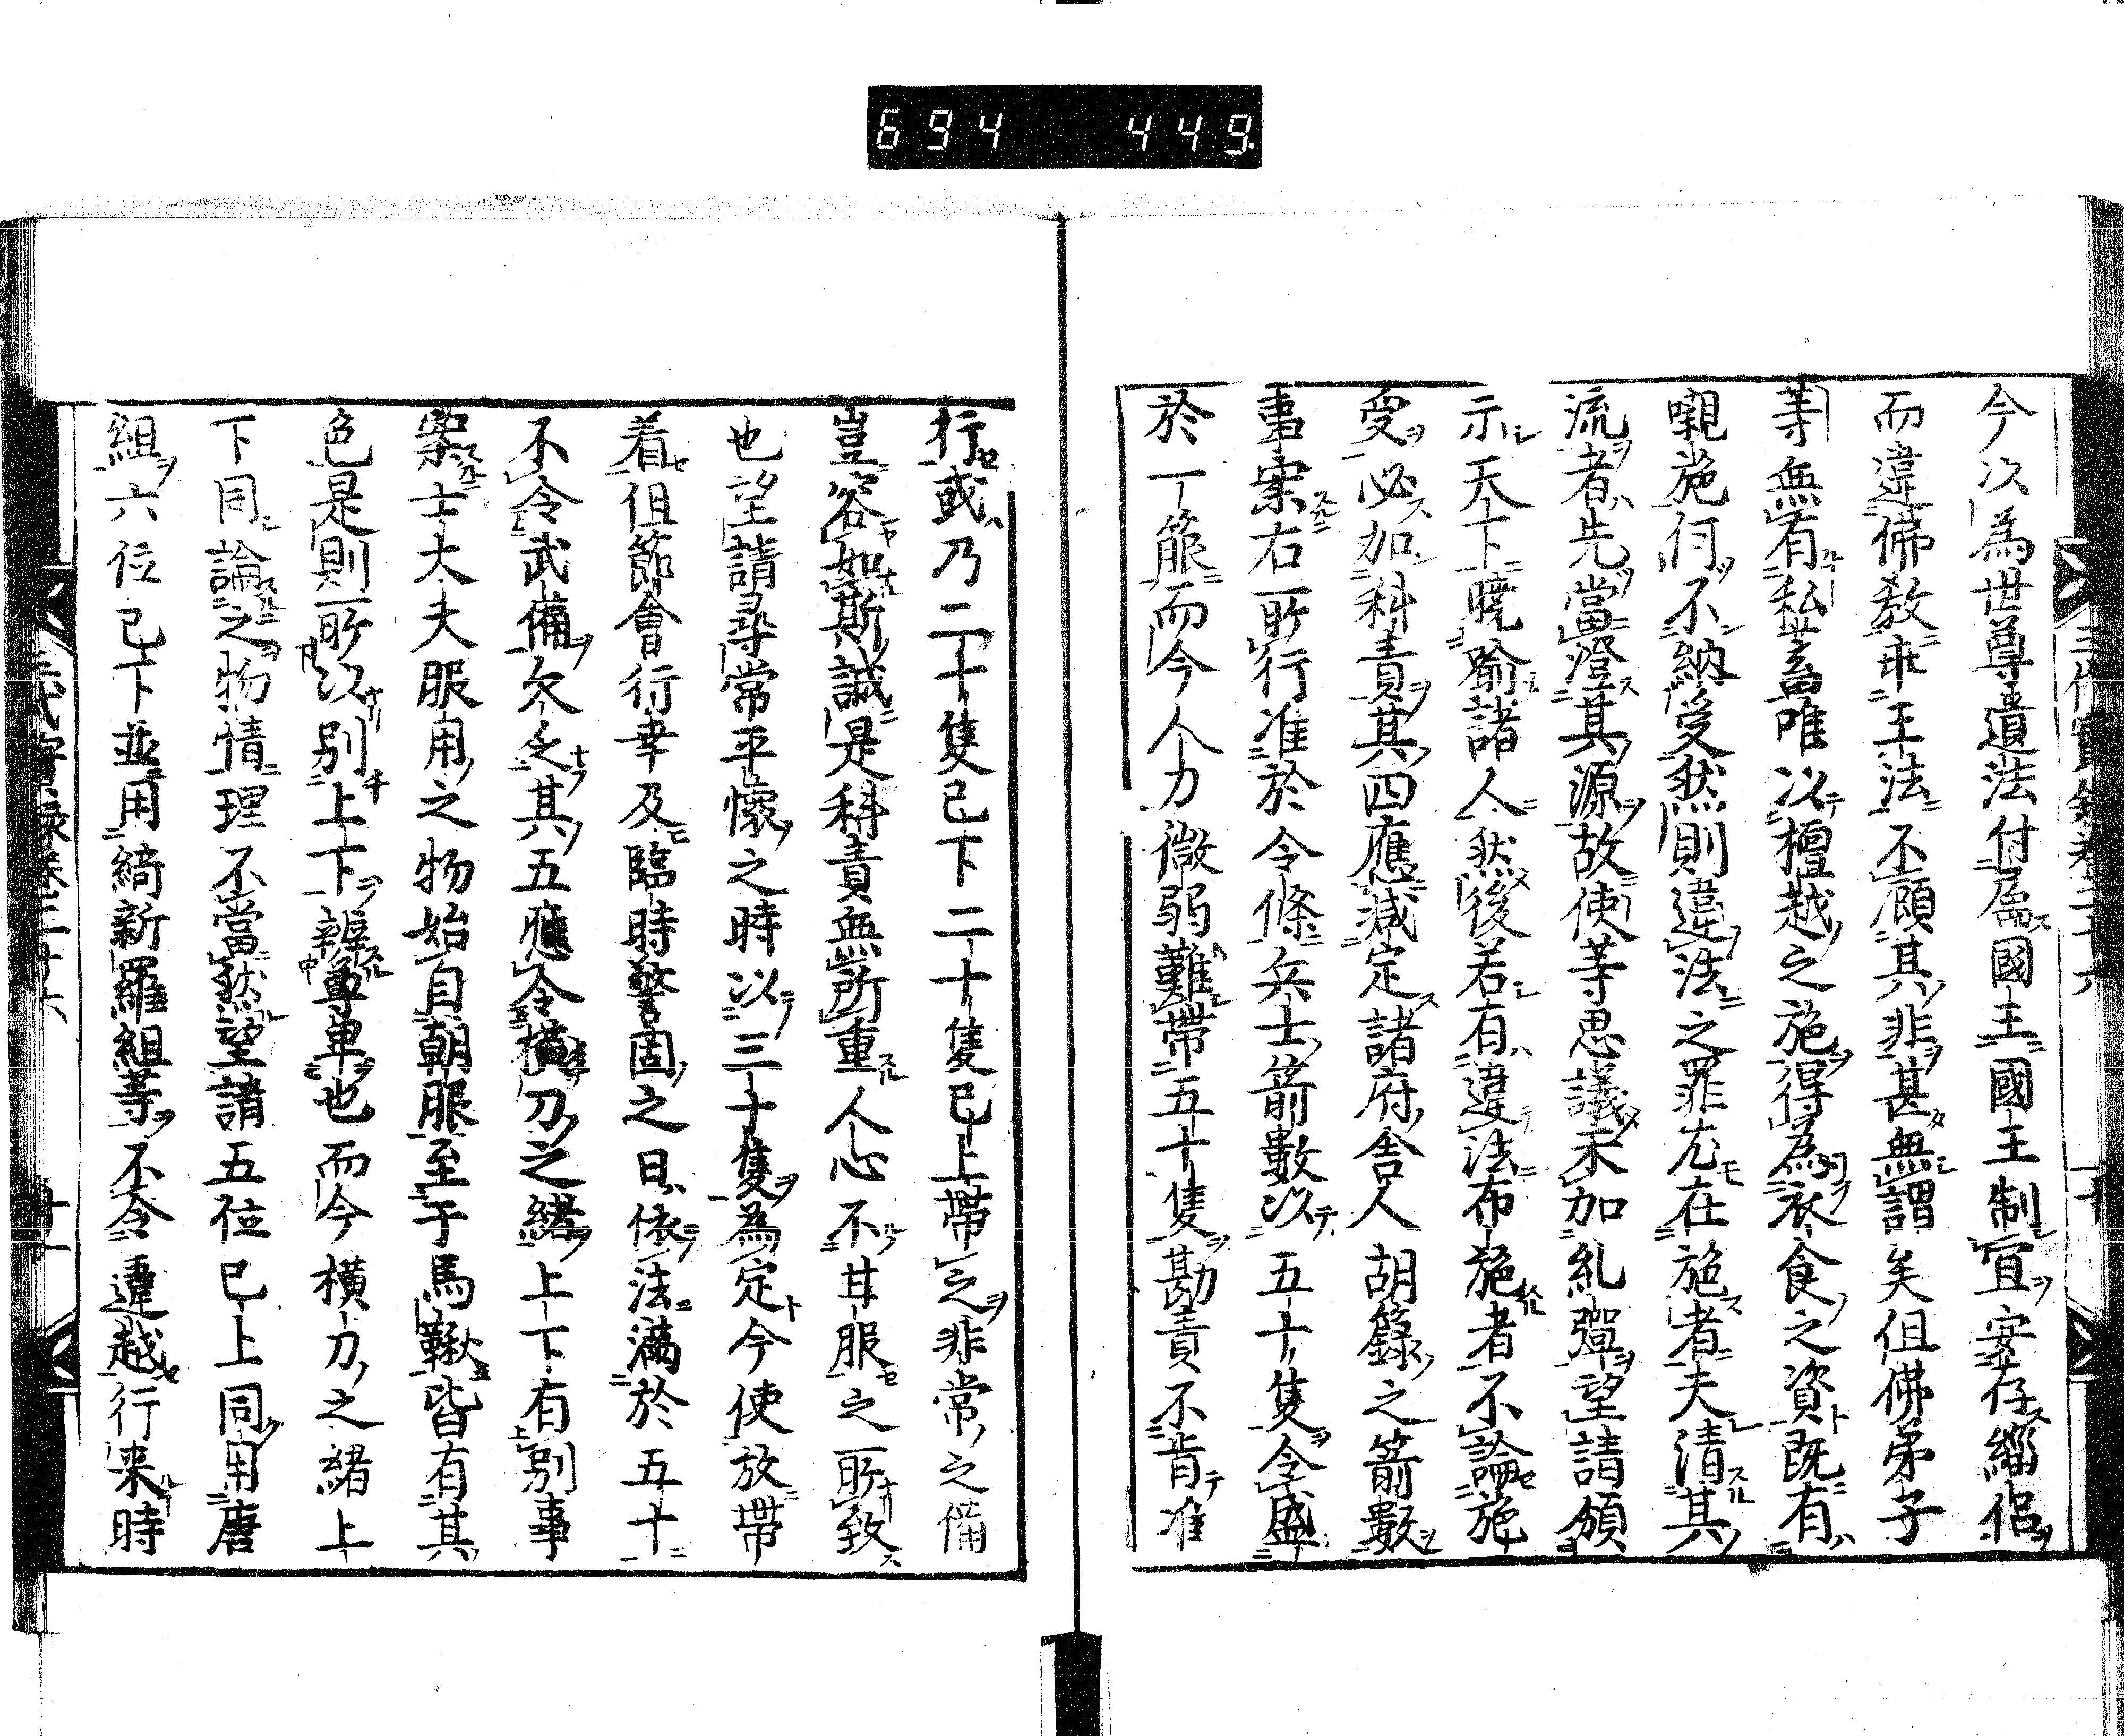 694 449
今以為世尊遺法付属國王國王制宜安存緇侶
而違佛教乖王法不顧其非甚無謂矣但佛弟子
等無有私蓄唯以檀越之施得為衣食之資既有
嚫施何不納受然則違法之罪尤在施者夫清其
流者先當澄其源故使等思議禾加糺彈望請頒
示天下曉喻諸人然後若有違法布施者不論施
受必加科責其四應減定諸府舎人胡籙之箭數
事案右所行准於令條兵士箭數以五十隻令盛
於一箙而今人力微弱難帯五十隻勘責不肯准
行或乃二十隻已下二十隻已上帯之非常之備
豈容如斯誠是科責無所重人心不甘服之所致
也望請尋常平懷之時以三十隻為定今使放帯
着但節會行幸及臨時警固之日依法滿於五十
不令武備欠乏其五應令横刀之緒上下有別事
案士大夫服用之物始自朝服至于馬鞦皆有其
色是則所以別上下辨尊卑也而今横刀之緒上
下同論之物情理不當然望請五位已上同用唐
組六位已下並用綺新羅組等不令違越行来時
三代實録卷二十六
十一